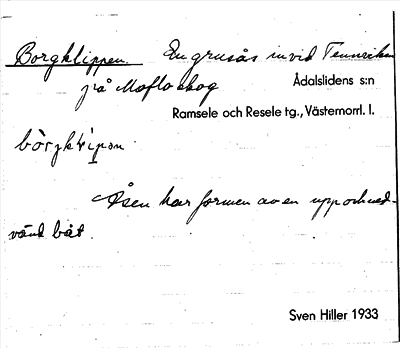 Borgklippen. En grusås invid Tennviken
på Moflo skog
Ådalslidens s:n
Ramsele och Resele tg., Västernorrl. l.
Åsen har formen av en uppochned-
vänd båt.
Sven Hiller 1933